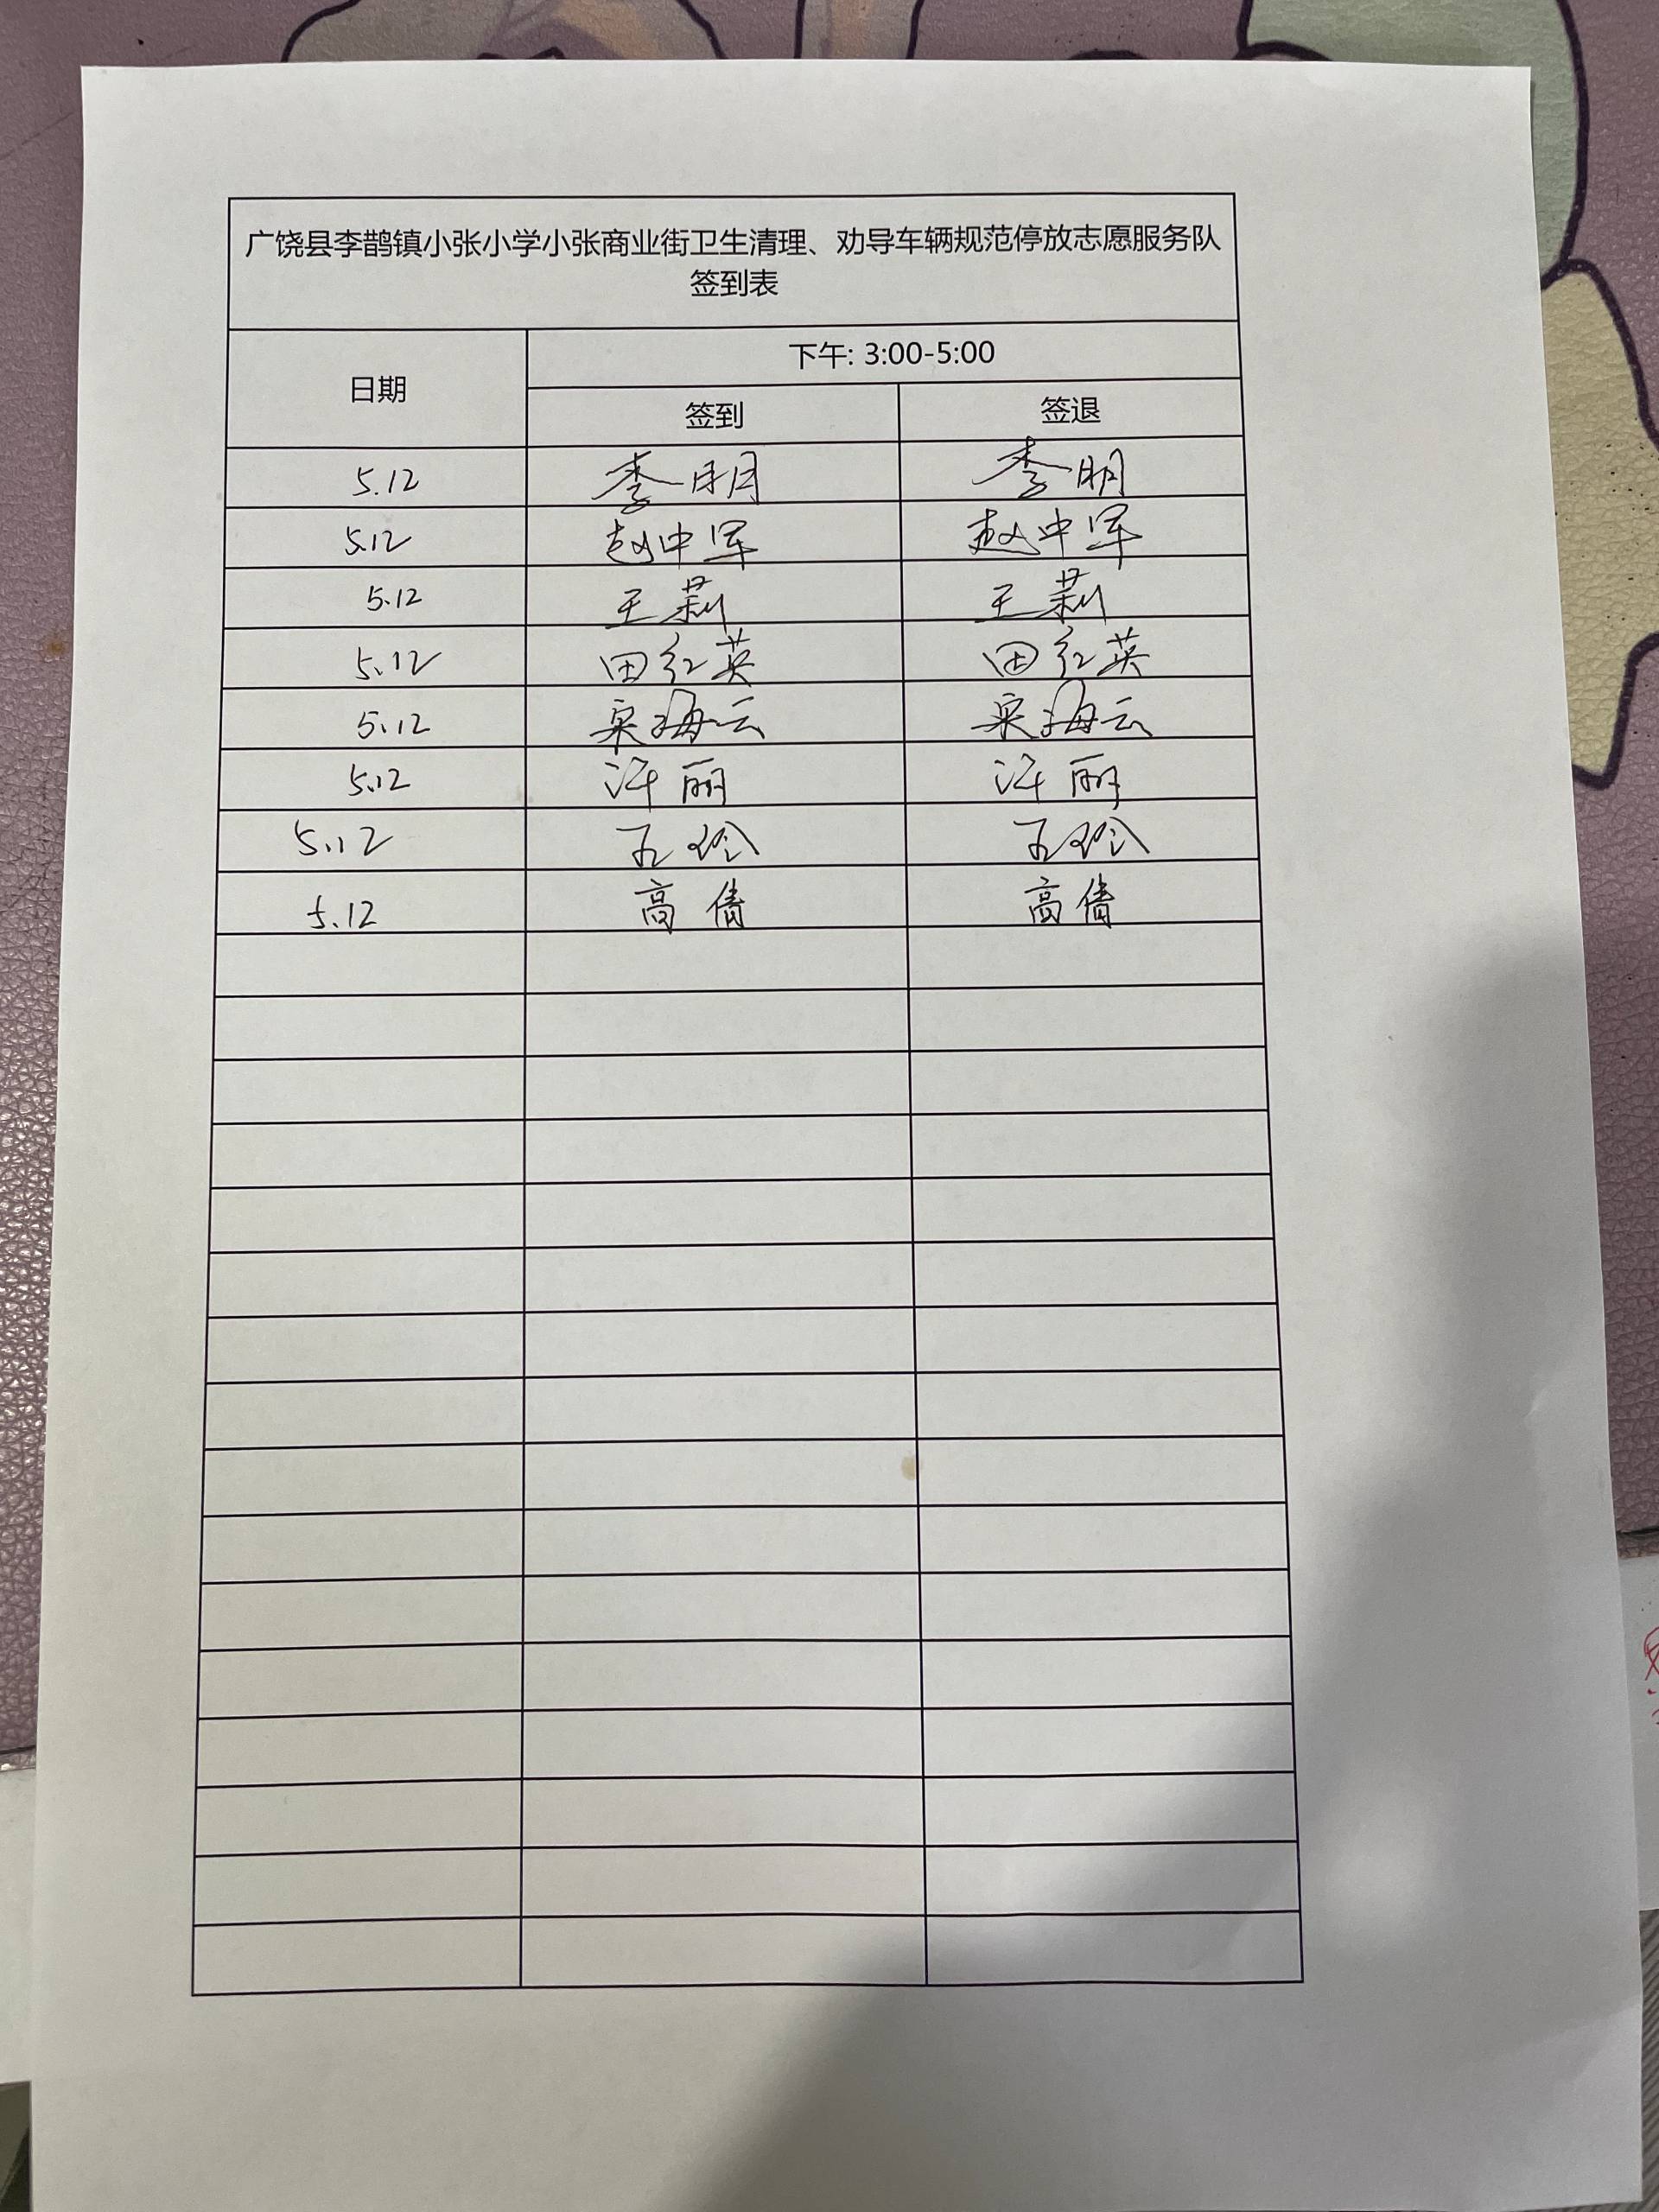 广饶县李鹊镇小张小学小张商业街卫生清理、劝导车辆规范停放志愿服务队
签到表
日期 下午: 3:00-5:00
签到 签退
5.12 李明 李明
5.12 赵中军 赵中军
5.12 王莉 王莉
5.12 田红英 田红英
5.12 海云 海云
5.12 许丽 许丽
5.12 王玲 王玲
5.12 高倩 高倩